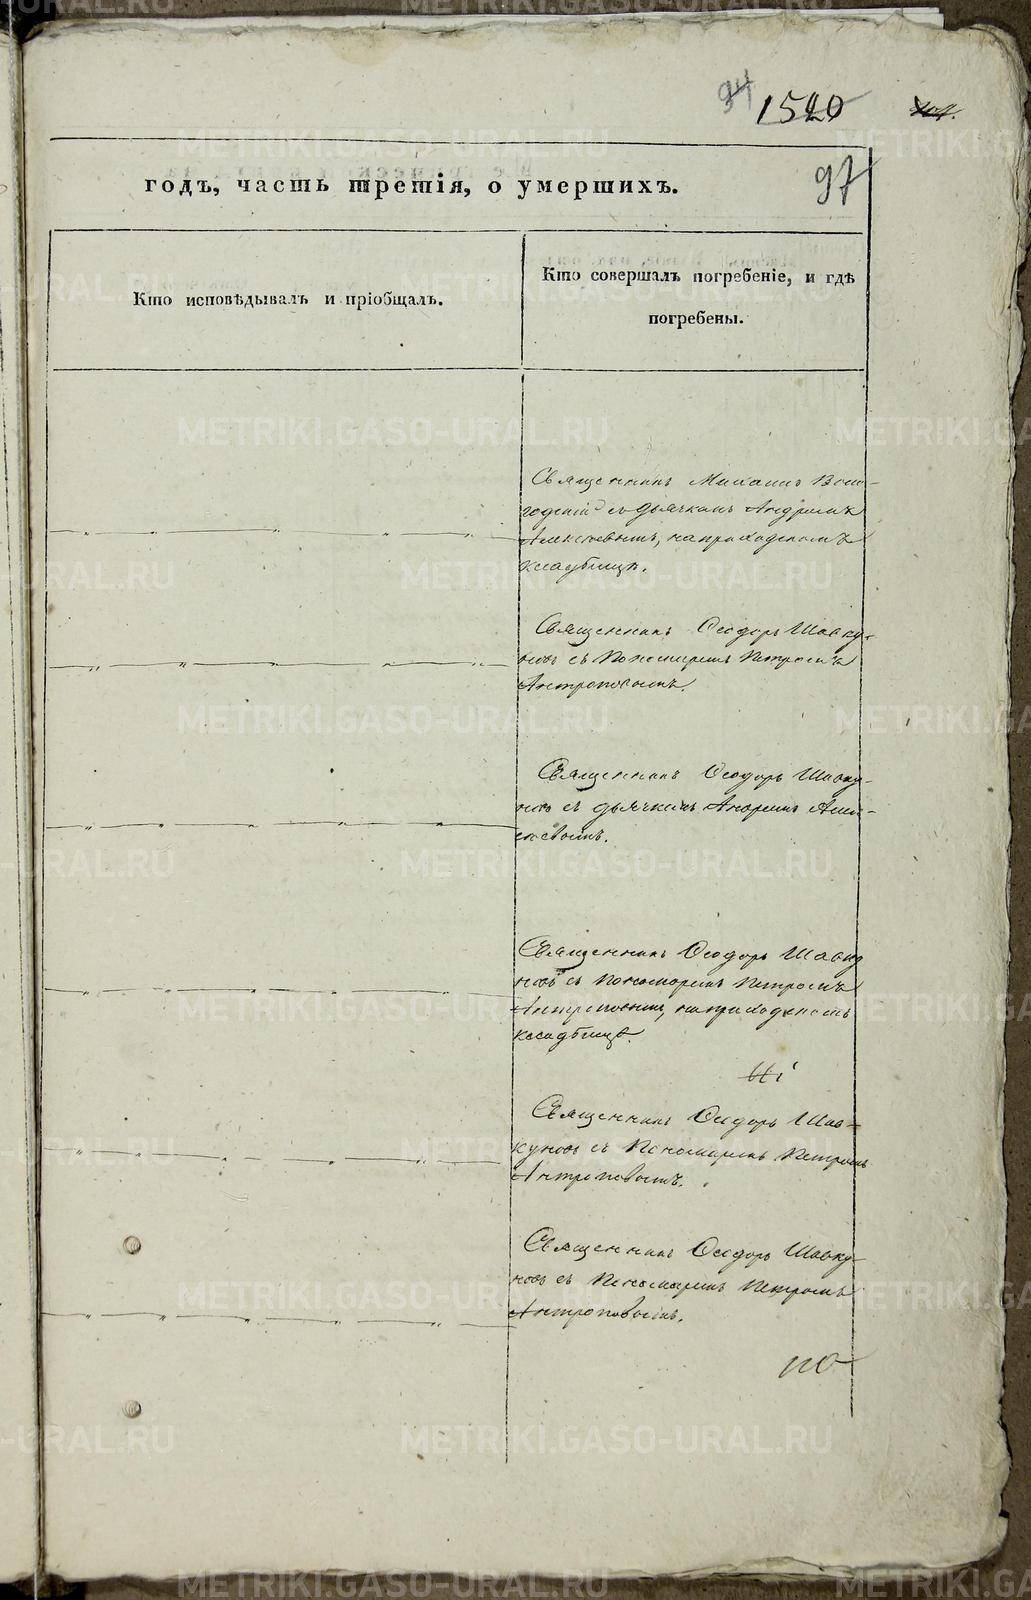 1520
97
годъ, часть третія, о умершихъ.
Кто исповѣдывалъ и пріобщалъ.
Кто совершалъ погребеніе, и гдѣ
погребены.
Священникъ Михаилъ
съ дьячкомъ Андреемъ
Алексѣевымъ, на приходскомъ
кладбищѣ.
Священникъ Ѳеодоръ Шавку-
новъ съ Пономаремъ Петромъ
Антроповымъ.
Священникъ Ѳеодоръ Шавку-
новъ съ дьячкомъ Андреемъ Алек-
сѣевымъ.
Священникъ Ѳеодоръ Шавку
новъ съ Пономаремъ Петромъ
Антроповымъ, на приходскомъ
кладбищѣ.
Священникъ Ѳеодоръ Шав-
куновъ съ Пономаремъ Петромъ
Антроповымъ.
Священникъ Ѳеодоръ Шавку-
новъ съ Пономаремъ Петромъ
Антроповымъ.
METRIKI.GASO-URAL.RU